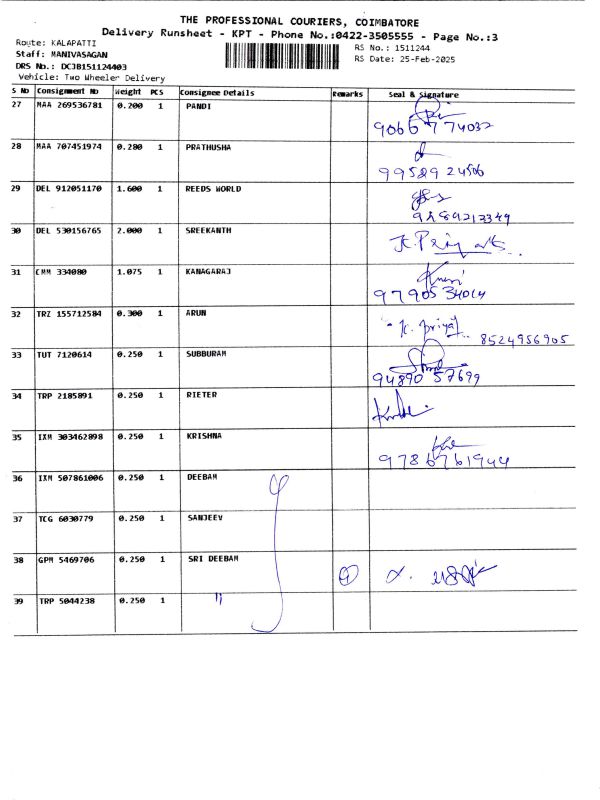 THE PROFESSIONAL COURIERS, COIMBATORE
Delivery Runsheet - KPT - Phone No.:0422-3505555 - Page No.:3
Route: KALAPATTI
RS No.: 1511244
Staff: MANIVASAGAN
RS Date: 25-Feb-2025
DRS No.: DCJB151124403
Vehicle: Two Wheeler Delivery
S No Consignment No Weight PCS Consignee Details Remarks Seal & Signature
27 MAA 269536781 0.200 1 PANDI
9066774032
28 MAA 707451974 0.280 1 PRATHUSHA
9952924506
29 DEL 912051170 1.600 1 REEDS WORLD
30 DEL 530156765 2.000 1 SREEKANTH
31 CMM 334080 1.075 1 KANAGARAJ
9790534014
32 TRZ 155712584 0.300 1 ARUN
K. Priya
8524956905
33 TUT 7120614 0.250 1 SUBBURAM
94890 57699
34 TRP 2185891 0.250 1 RIETER
35 IXM 303462898 0.250 1 KRISHNA
9786761944
36 IXM 507861006 0.250 1 DEEBAM
37 TCG 6030779 0.250 1 SANJEEV
38 GPM 5469706 0.250 1 SRI DEEBAM
39 TRP 5044238 0.250 1 "